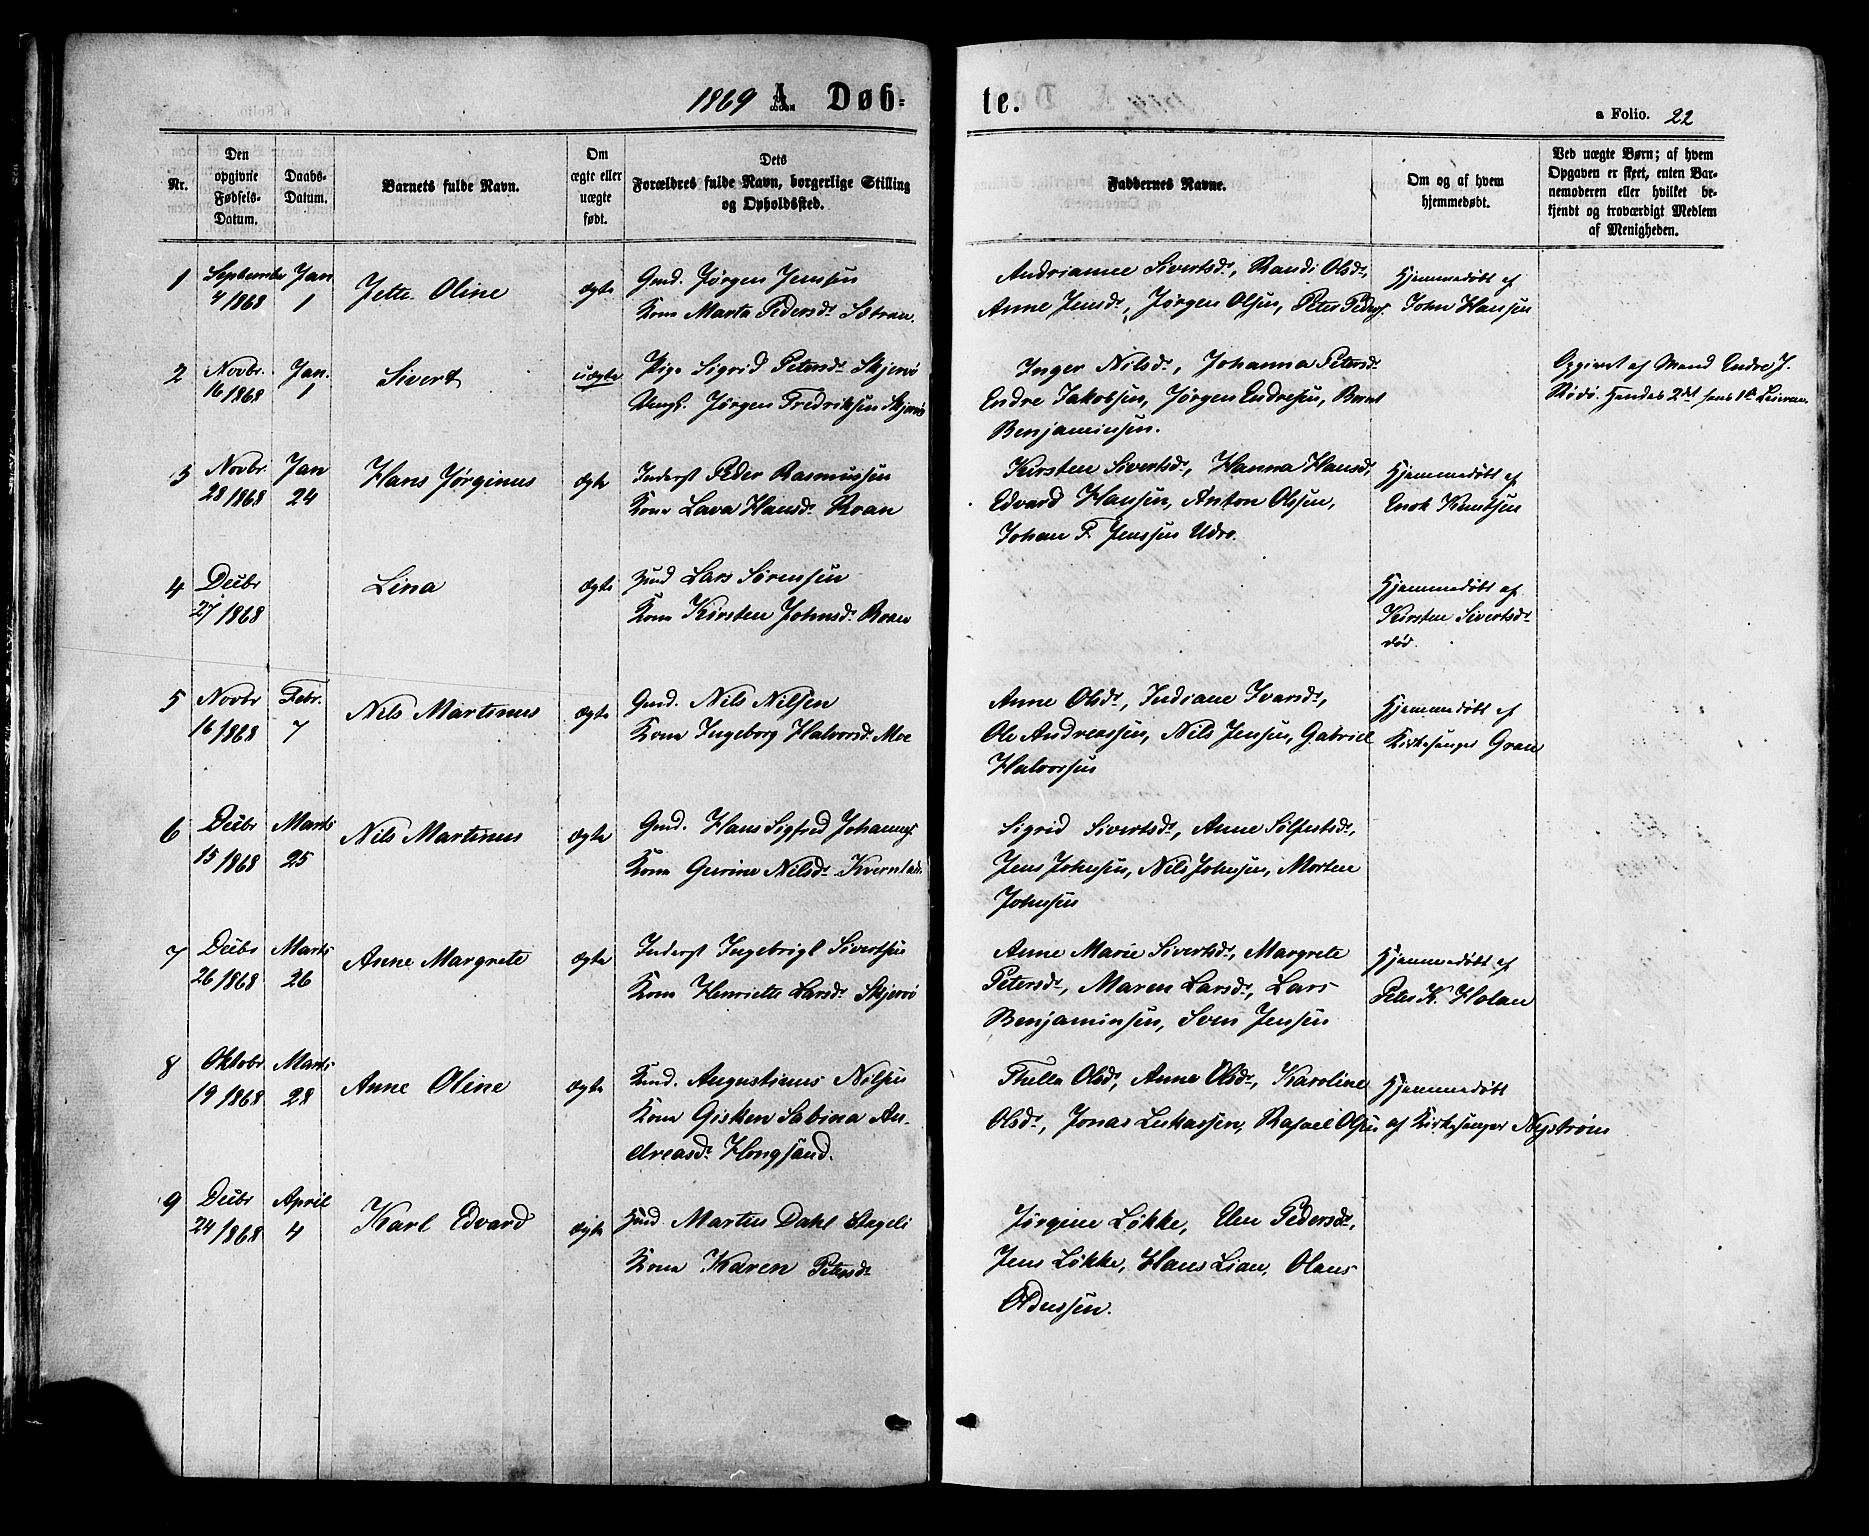 1869 A. Døb-
te.
a Folio. 22
Nr.
Den
opgivne
Fødsels-
Datum.
Daabs-
Datum.
Barnets fulde Navn.
Om
ægte eller
uægte
født.
Dets
Forældres fulde Navn, borgerlige Stilling
og Opholdssted.
Faddernes Navne.
Om og af hvem
hjemmedøbt.
Ved uægte Børn; af hvem
Opgaven er skeet, enten Bar-
nemoderen eller hvilket be-
kjendt og troværdigt Medlem
af Menigheden.
1 September Jan
4/1868 1
Jette Oline
ægte
Gmd. Jørgen Jenssen
Kone Marta Pedersdr
Andrianne Sivertsdr, Randi Olsdr,
Anne Jensdr, Jørgen Olsen, Peter Peders.
Hjemmedøbt af
John Hansen
2 Novbr. Jan.
16 1868 1
Sivert
uægte
Pige Sigrid Petersdr Skjervø
Ungk. Jørgen Fredriksen Skjervø
Inger Nilsdr, Johanna Petersdr
Endre Jakobsen, Jørgen Endresen, Bernt
Benjaminsen.
Opgivet af Mand Endre J.
Rødø. Hendes 2det hans 1ste Leierm.
3 Novbr. Jan
28 1868 24
Hans Jørginus
ægte
Inderst Peder Rasmussen
Kone Lava Hansdr Roan
Kirsten Sivertsdr, Hanna Hansdr,
Edvard Hansen, Anton Olssen,
Johan P. Jenssen Udro.
Hjemmedøbt af
Enok Knutsen
4 Decbr
27/1868
Lina
ægte
Lars Sørensen
Kone Kirsten Johnsdr Roan
Hjemmedøbt af
Kirsten Sivertsdr
død.
5 Novbr Febr.
16/1868 7
Nils Martinus
ægte
Gmd. Nils Nilsen
Kone Ingeborg Halvorsdr Moe
Anne Olsdr, Indiane Ivarsdr,
Ole Andreassen, Nils Jensen, Gabriel
Halvorsen
Hjemmedøbt af
Kirkesanger Gran
6 Decbr Marts
15/1868 25
Nils Martinus
ægte
Gmd. Hans Sigfred Johanns
Kone Gurine Nilsdr
Sigrid Sivertsdr, Anne Sølfestsdr,
Jens Johnsen, Nils Johnsen, Morten
Johnsen
7 Decbr Marts
26/1868 26
Anne Margrete
ægte
Inderst Ingebrigt Sivertsen
Kone Henriette Larsdr Skjervø
Anne Marie Sivertsdr, Margrete
Petersdr, Maren Larsdr, Lars
Benjaminsen, Sven Jensen
Hjemmedøbt af
Peter K. Holan
8 Oktobr Marts
19 1868 28
Anne Oline
ægte
Augustinus Nilsen
Kone Gisken Sabina An-
dreasdr Hongsand.
Thella Olsdr, Anne Olsdr, Karoline
Olsdr, Jonas Lukassen, Rafael Olsen
Hjemmedøbt
af Kirkesanger Nystrøm
9 Decbr April
24/1868 4
Karl Edvard
ægte
Martin Dahl
Kone Karen Petersdr
Jørgine Løkke, Elen Pedersdr,
Jens Løkke, Hans Lian, Olaus